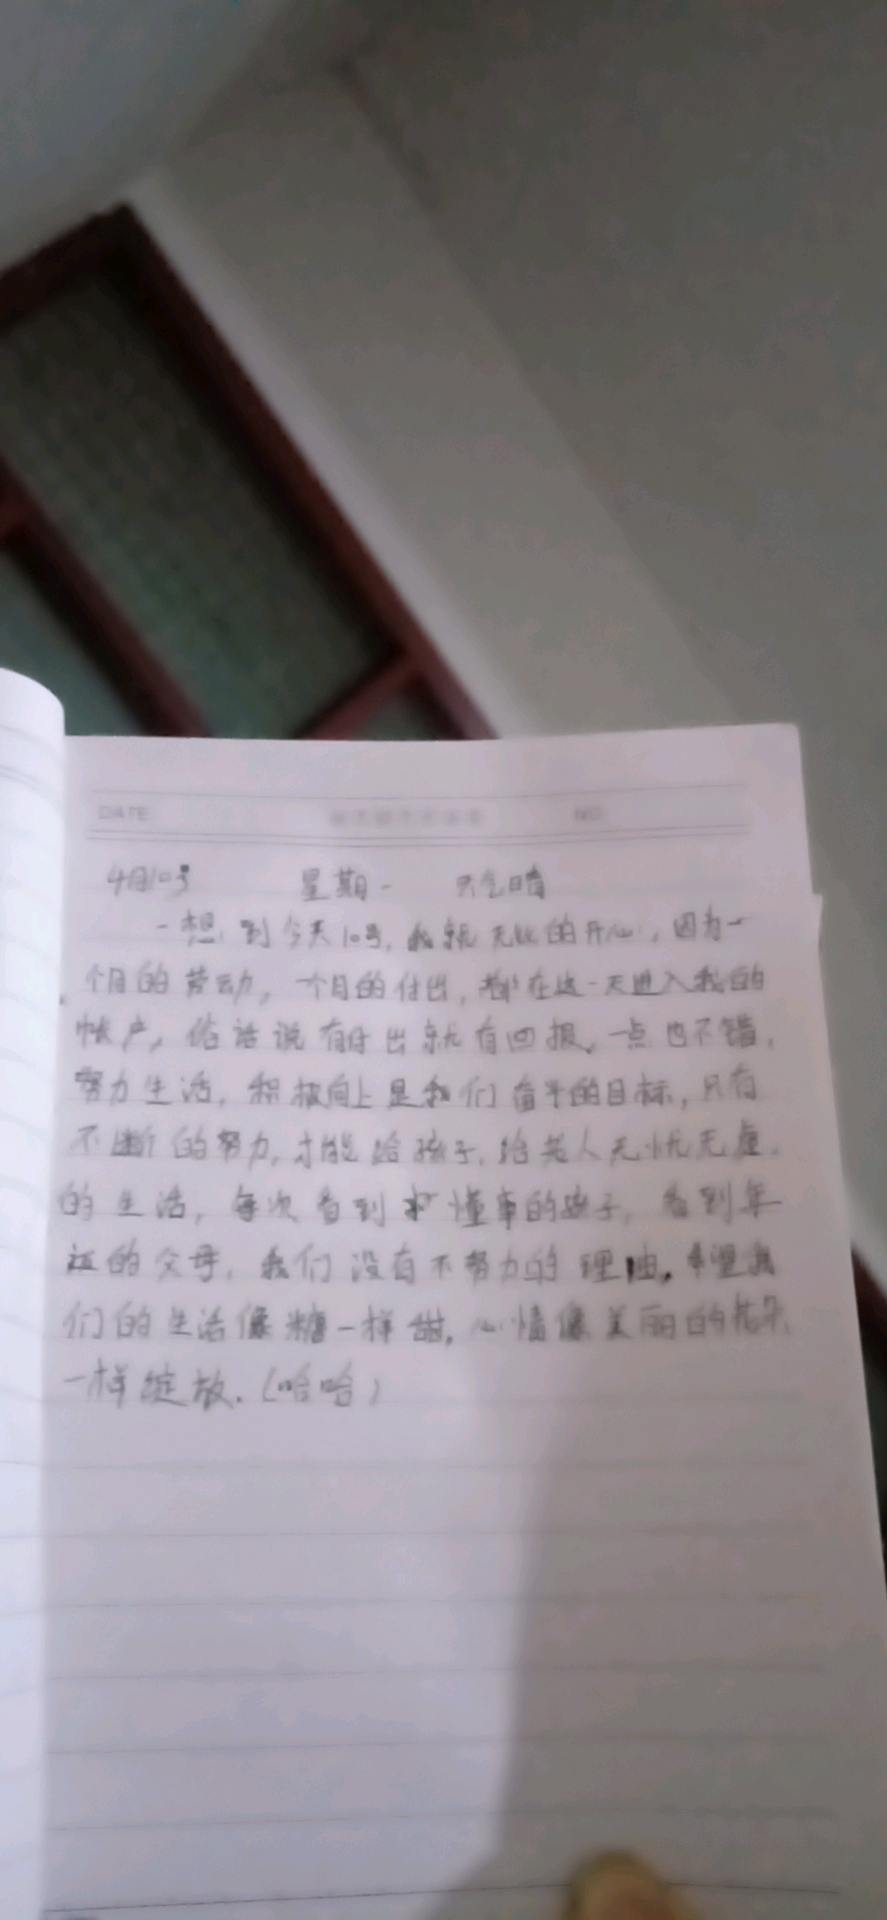 DATE NO
4月10号 星期一 天气晴
一想到今天10号,我就无比的开心,因为一
个月的劳动,一个月的付出,都在这一天进入我的
帐户,俗话说有付出就有回报,一点也不错,
努力生活,积极向上是我们奋斗的目标,只有
不断的努力,才能给孩子,给老人无忧无虑
的生活,每次看到懂事的孩子,看到年
迈的父母,我们没有不努力的理由,希望我
们的生活像糖一样甜,心情像美丽的花朵
一样绽放.(哈哈)